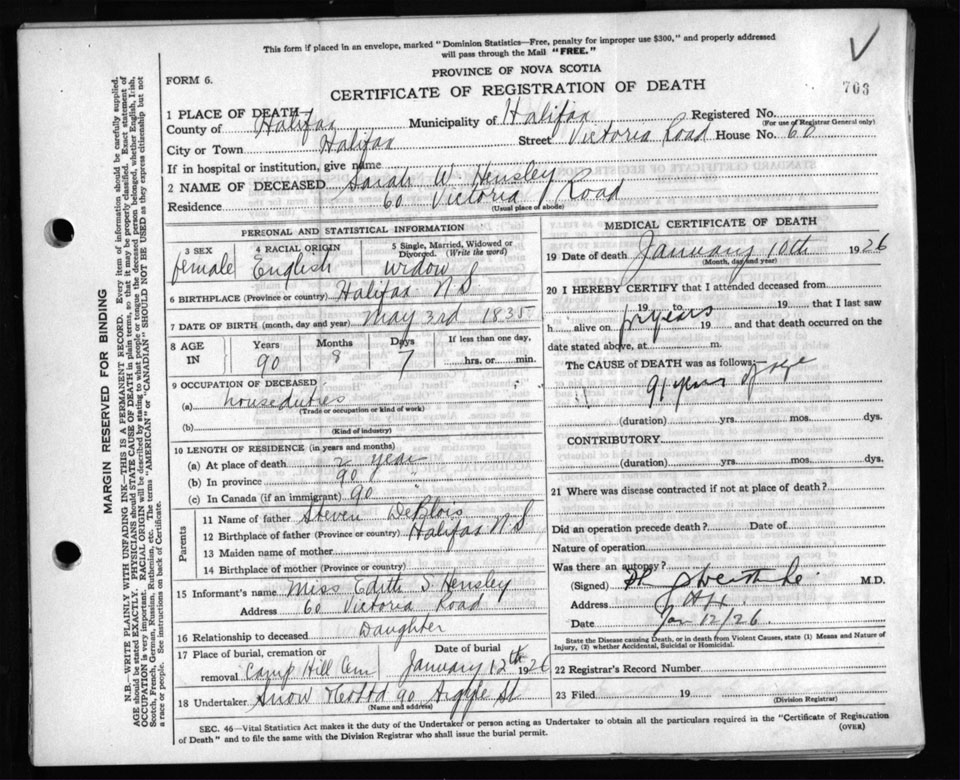 This form if placed in an envelope, marked "Dominion Statistics—Free, penalty for improper use $300," and properly addressed
will pass through the Mail "FREE."
PROVINCE OF NOVA SCOTIA
FORM 6.
CERTIFICATE OF REGISTRATION OF DEATH
703
1 PLACE OF DEATH
County of Halifax Municipality of Halifax Registered No.
(For use of Registrar General only)
City or Town Halifax Street Victoria Road House No. 60
If in hospital or institution, give name
2 NAME OF DECEASED Sarah W Hensley
Residence 60 Victoria Road
(Usual place of abode)
PERSONAL AND STATISTICAL INFORMATION
3 SEX female
4 RACIAL ORIGIN English
5 Single, Married, Widowed or Divorced. (Write the word) widow
6 BIRTHPLACE (Province or country) Halifax N S
7 DATE OF BIRTH (month, day and year) May 3rd 1835
8 AGE IN Years 90 Months 8 Days 7 If less than one day, hrs. or min.
9 OCCUPATION OF DECEASED
(a) houseduties
(Trade or occupation or kind of work)
(b)
(Kind of industry)
10 LENGTH OF RESIDENCE (in years and months)
(a) At place of death year
(b) In province 90 "
(c) In Canada (if an immigrant) 90 "
Parents
11 Name of father Steven DeBlois
12 Birthplace of father (Province or country) Halifax N S
13 Maiden name of mother
14 Birthplace of mother (Province or country)
15 Informant's name Miss Edith S Hensley
Address 60 Victoria Road
16 Relationship to deceased Daughter
17 Place of burial, cremation or removal Camp Hill Cem Date of burial January 12th 1926
18 Undertaker Snow & Co Ltd 90 Argyle St
(Name and address)
MEDICAL CERTIFICATE OF DEATH
19 Date of death January 10th 1926
(Month, day and year)
20 I HEREBY CERTIFY that I attended deceased from
19 to 19 that I last saw
h alive on years 19 and that death occurred on the
date stated above, at m.
The CAUSE OF DEATH was as follows:—
91 years of age
(duration) yrs. mos. dys.
CONTRIBUTORY
(duration) yrs. mos. dys.
21 Where was disease contracted if not at place of death?
Did an operation precede death? Date of
Nature of operation
Was there an autopsy?
(Signed) M.D.
Address Hfx.
Date Jan 12/26
State the Disease causing Death, or in death from Violent Causes, state (1) Means and Nature of
Injury, (2) whether Accidental, Suicidal or Homicidal.
22 Registrar's Record Number
23 Filed 19
(Division Registrar)
SEC. 46—Vital Statistics Act makes it the duty of the Undertaker or person acting as Undertaker to obtain all the particulars required in the "Certificate of Registration
of Death" and to file the same with the Division Registrar who shall issue the burial permit. (OVER)
MARGIN RESERVED FOR BINDING
N.B.—WRITE PLAINLY WITH UNFADING INK—THIS IS A PERMANENT RECORD. Every item of information should be carefully supplied.
AGE should be stated EXACTLY. PHYSICIANS should STATE CAUSE OF DEATH in plain terms, so that it may be properly classified. Exact statement of
OCCUPATION is very important. RACIAL ORIGIN will be described by stating to what people or tongue the deceased person belonged, whether English, Irish,
Scotch, French, German, Russian, Ruthenian, etc. The terms "AMERICAN" or "CANADIAN" SHOULD NOT BE USED as they express citizenship but not
a race or people. See instructions on back of Certificate.